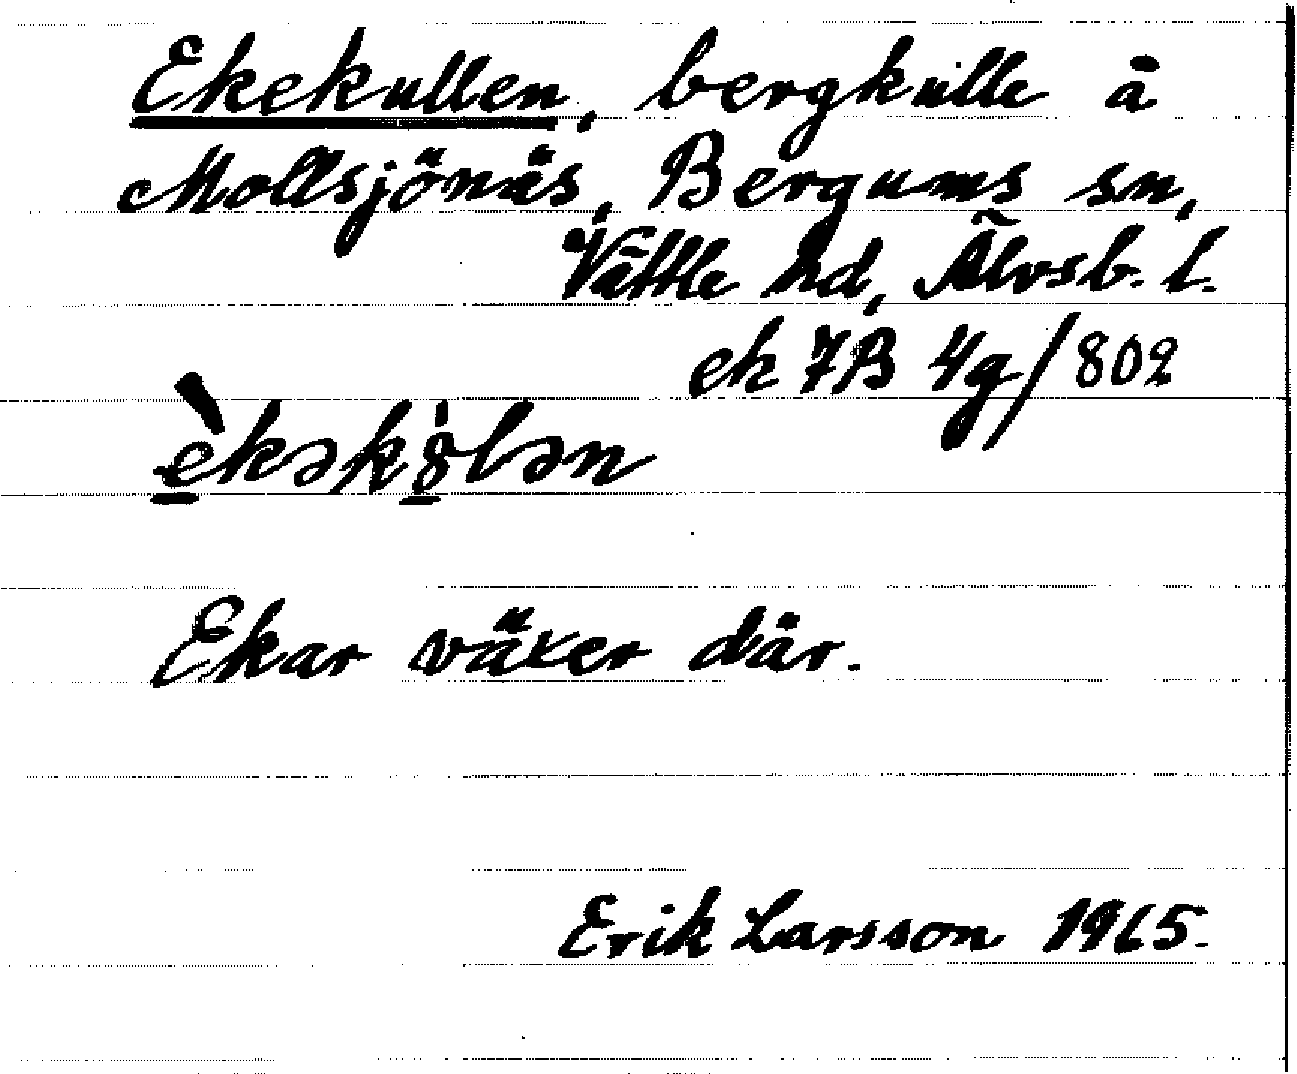 Ekekullen, bergkulle å
Mollsjönäs, Bergums sn,
Vättle hd, Älvsb. l.
ek 7B 4g/802
èkəkȯlən
Ekar växer där.
Erik Larsson 1965.